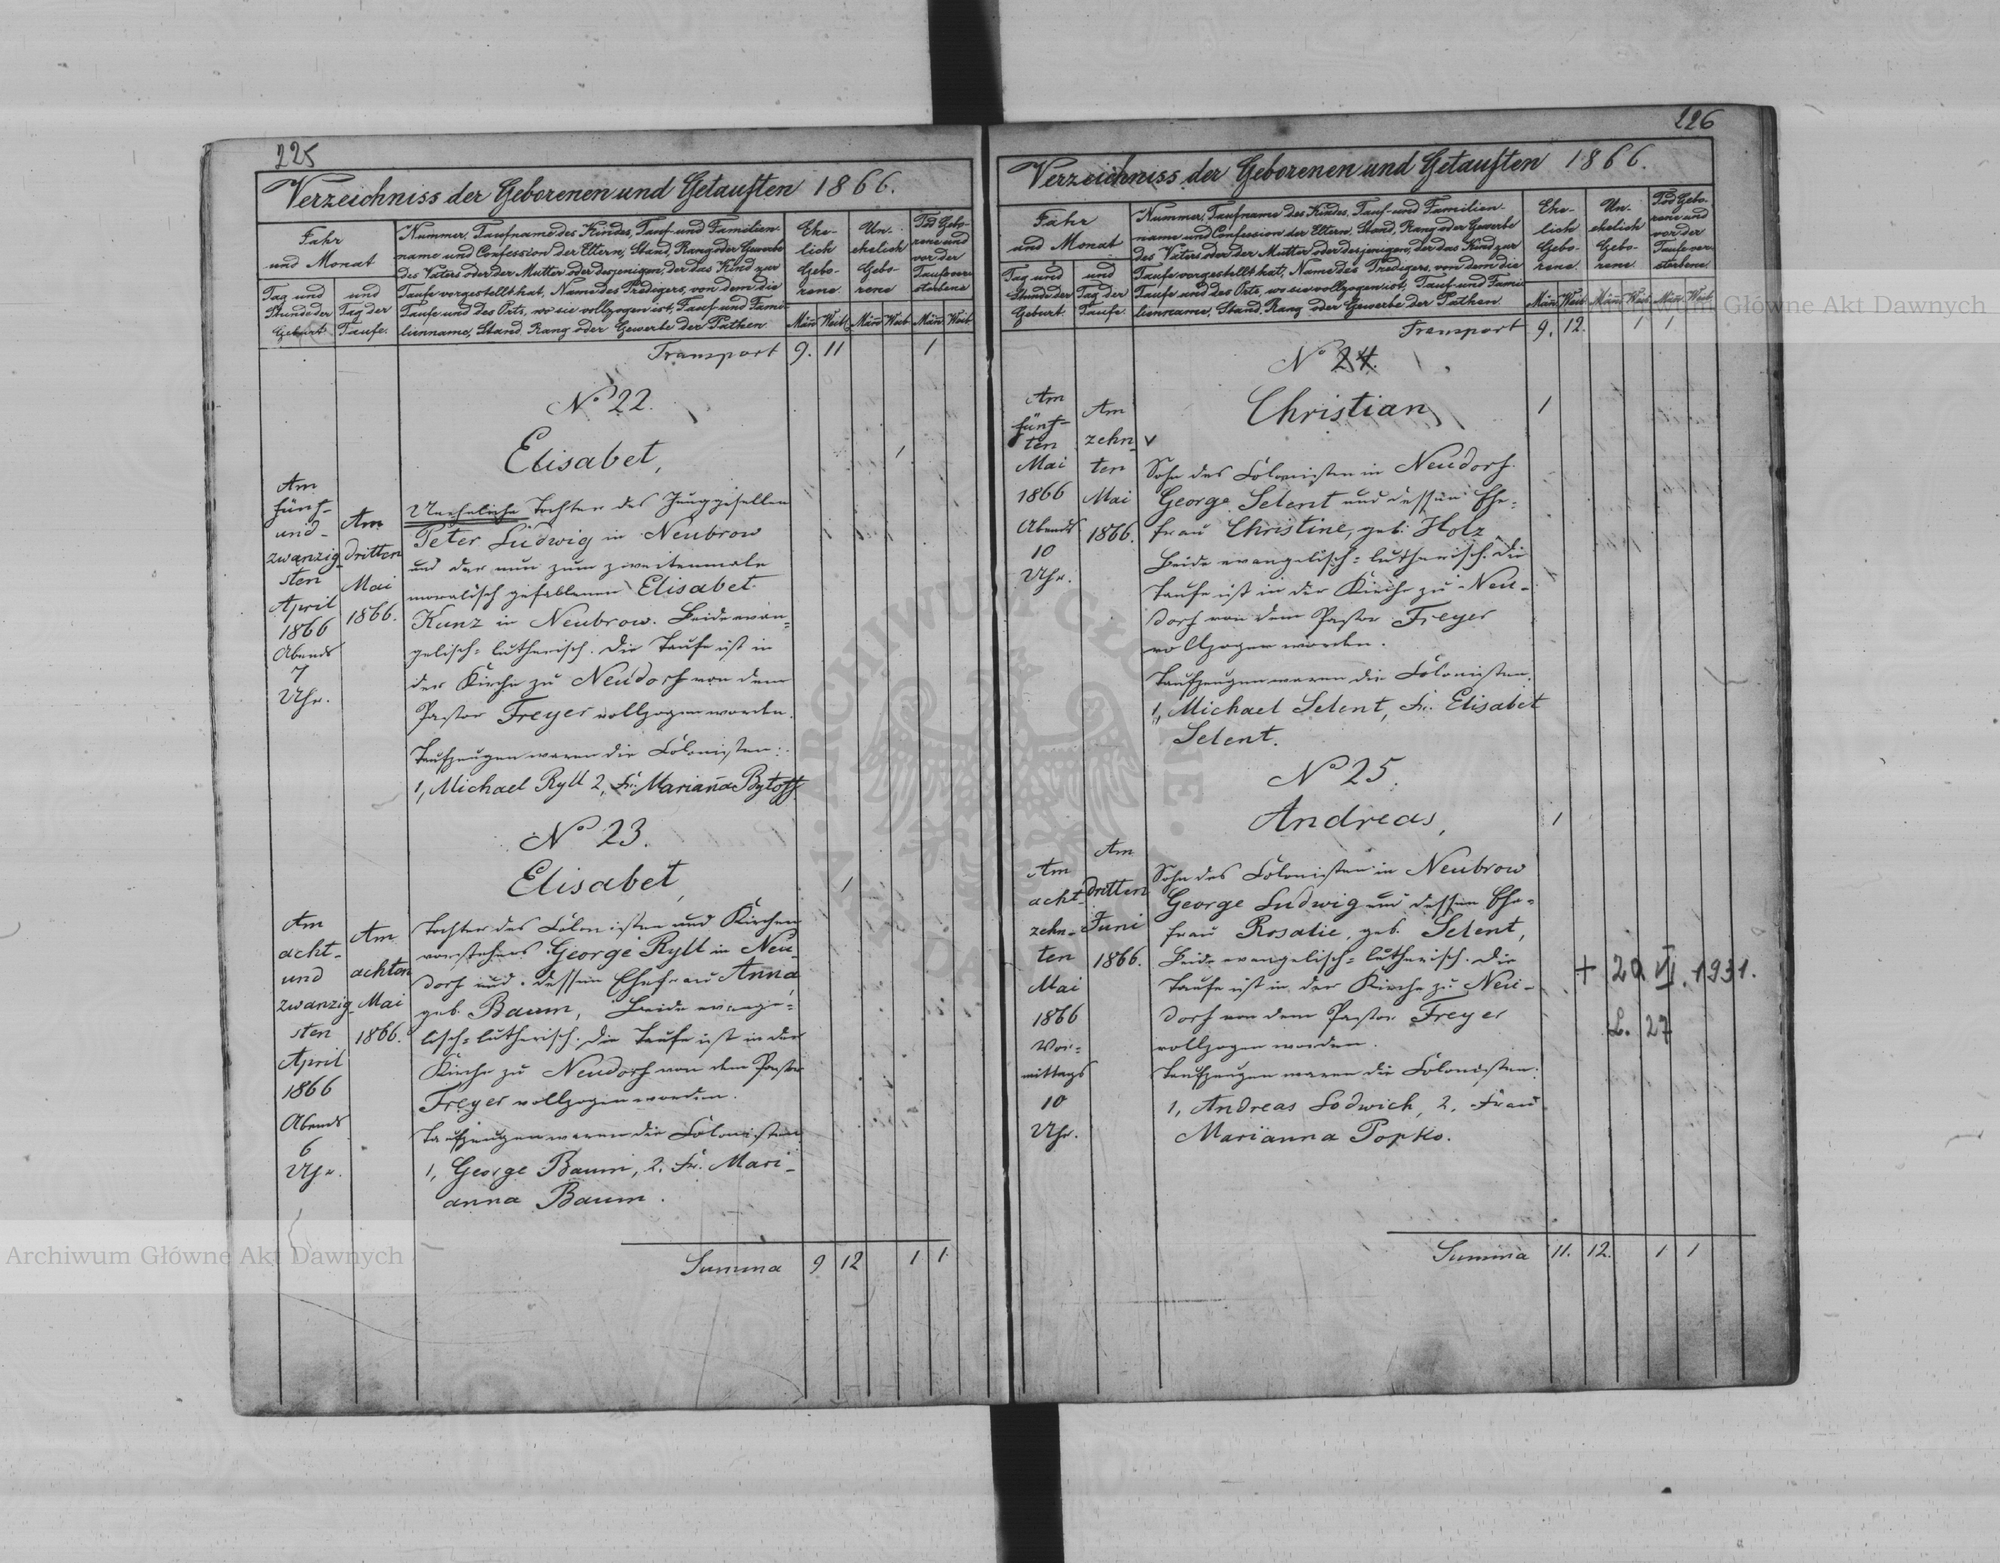 225
Verzeichniss der Geborenen und Getauften 1866.
Jahr
und Monat
Tag und
Stunde der
Geburt
und
Tag der
Taufe.
Nummer, Taufname des Kindes, Tauf und Familien-
name und Confession der Eltern, Stand, Rang oder Gewerbe
des Vaters oder der Mutter oder desjenigen, der das Kind zur
Taufe vorgestellt hat, Name des Predigers, von dem die
Taufe und des Orts, wo sie vollzogen ist, Tauf und Fami-
lienname, Stand, Rang oder Gewerbe der Pathen.
Ehe-
lich
Gebo-
rene
Un-
ehelich
Gebo-
rene
Tod Gebo-
rene und
vor der
Taufe ver-
storbene
Män̄ Weib Män̄ Weib Män̄ Weib
Transport 9. 11 1
No 22.
Elisabet, 1
Am
fünf-
und-
zwanzig-
sten
April
1866
Abends
7
Uhr.
Am
dritten
Mai
1866.
Uneheliche Tochter des Junggesellen
Peter Ludwig in Neubrow
und der nun zum zweitenmale
moralisch gefallenen Elisabet
Kunz in Neubrow. Beide evan-
gelisch-lutherisch. Die Taufe ist in
der Kirche zu Neudorf von dem
Pastor Freyer vollzogen worden.
Taufzeugen waren die Colonisten:
1, Michael Ryll 2, Fr. Mariaña Bytoff
No 23.
Elisabet, 1
Am
acht-
und
zwanzig-
sten
April
1866
Abends
6
Uhr.
Am
achten
Mai
1866.
Tochter des Colonisten und Kirchen
vorstehers George Ryll in Neu-
dorf und dessen Ehefrau Anna
geb. Baum, Beide evange-
lisch-lutherisch. Die Taufe ist in der
Kirche zu Neudorf von dem Pastor
Freyer vollzogen worden.
Taufzeugen waren die Colonisten
1, George Baum, 2. Fr. Mari-
anna Baum.
Summa 9 12 1 1
226
Verzeichniss der Geborenen und Getauften 1866.
Jahr
und Monat
Tag und
Stunde der
Geburt.
und
Tag der
Taufe.
Nummer, Taufname des Kindes, Tauf- und Familien-
name und Confession der Eltern, Stand, Rang oder Gewerbe
des Vaters oder der Mutter oder desjenigen, der das Kind zur
Taufe vorgestellt hat, Name des Predigers, von dem die
Taufe und des Orts, wo sie vollzogen ist, Tauf und Fami-
lienname, Stand, Rang oder Gewerbe der Pathen.
Ehe-
lich
Gebo-
rene
Un-
ehelich
Gebo-
rene
Tod Gebo-
rene und
vor der
Taufe ver-
storbene
Män̄ Weib Män̄ Weib Män̄ Weib
Transport 9. 12. 1 1
No 24.
Christian, 1
Am
fünf-
ten
Mai
1866
Abends
10
Uhr.
Am
zehn-
ten
Mai
1866.
Sohn des Colonisten in Neudorf
George Selent und dessen Ehe-
frau Christine, geb. Holz
Beide evangelisch-lutherisch. Die
Taufe ist in der Kirche zu Neu-
dorf von dem Pastor Freyer
vollzogen worden.
Taufzeugen waren die Colonisten.
1, Michael Selent, Fr. Elisabet
Selent.
No 25.
Andreas, 1
Am
acht-
zehn-
ten
Mai
1866
Vor-
mittags
10
Uhr.
Am
dritten
Juni
1866.
Sohn des Colonisten in Neubrow
George Ludwig und dessen Ehe-
frau Rosalie, geb. Selent,
Beide evangelisch-lutherisch. Die
Taufe ist in der Kirche zu Neu-
dorf von dem Pastor Freyer
vollzogen worden.
Taufzeugen waren die Colonisten:
1, Andreas Lodwich, 2. Frau
Marianna Popko.
L. 27
Summa 11. 12. 1 1
Archiwum Główne Akt Dawnych
Archiwum Główne Akt Dawnych